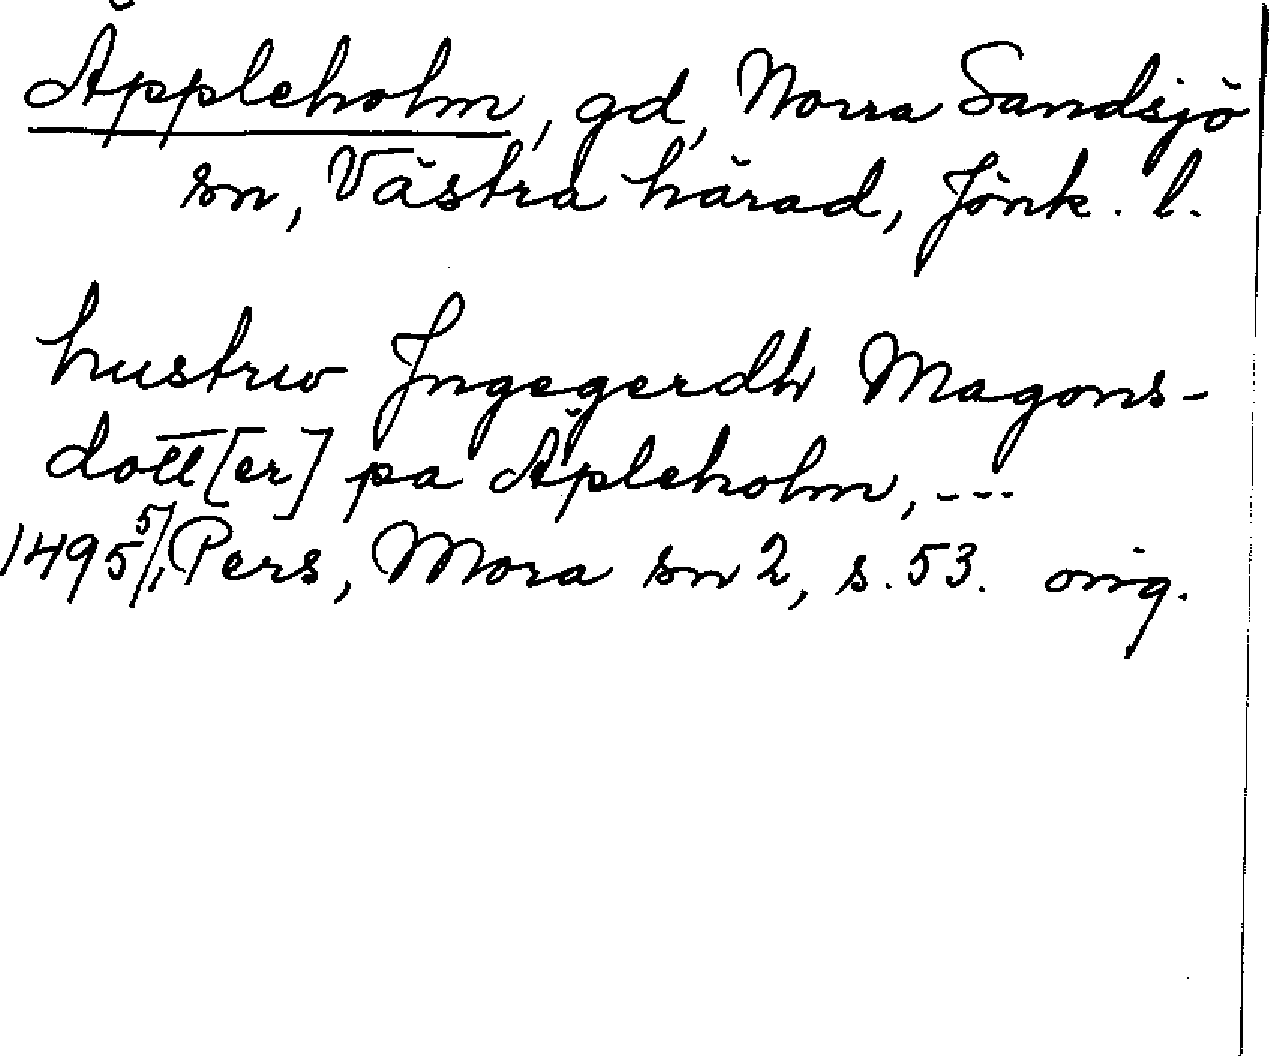 Äppleholm, gd, Norra Sandsjö
sn, Västra härad, Jönk. l.
hustrw Jngegerdh Magons-
dott[er] pa Äpleholm, ---
1495 5/1, Pers, Mora sn 2, s. 53. orig.